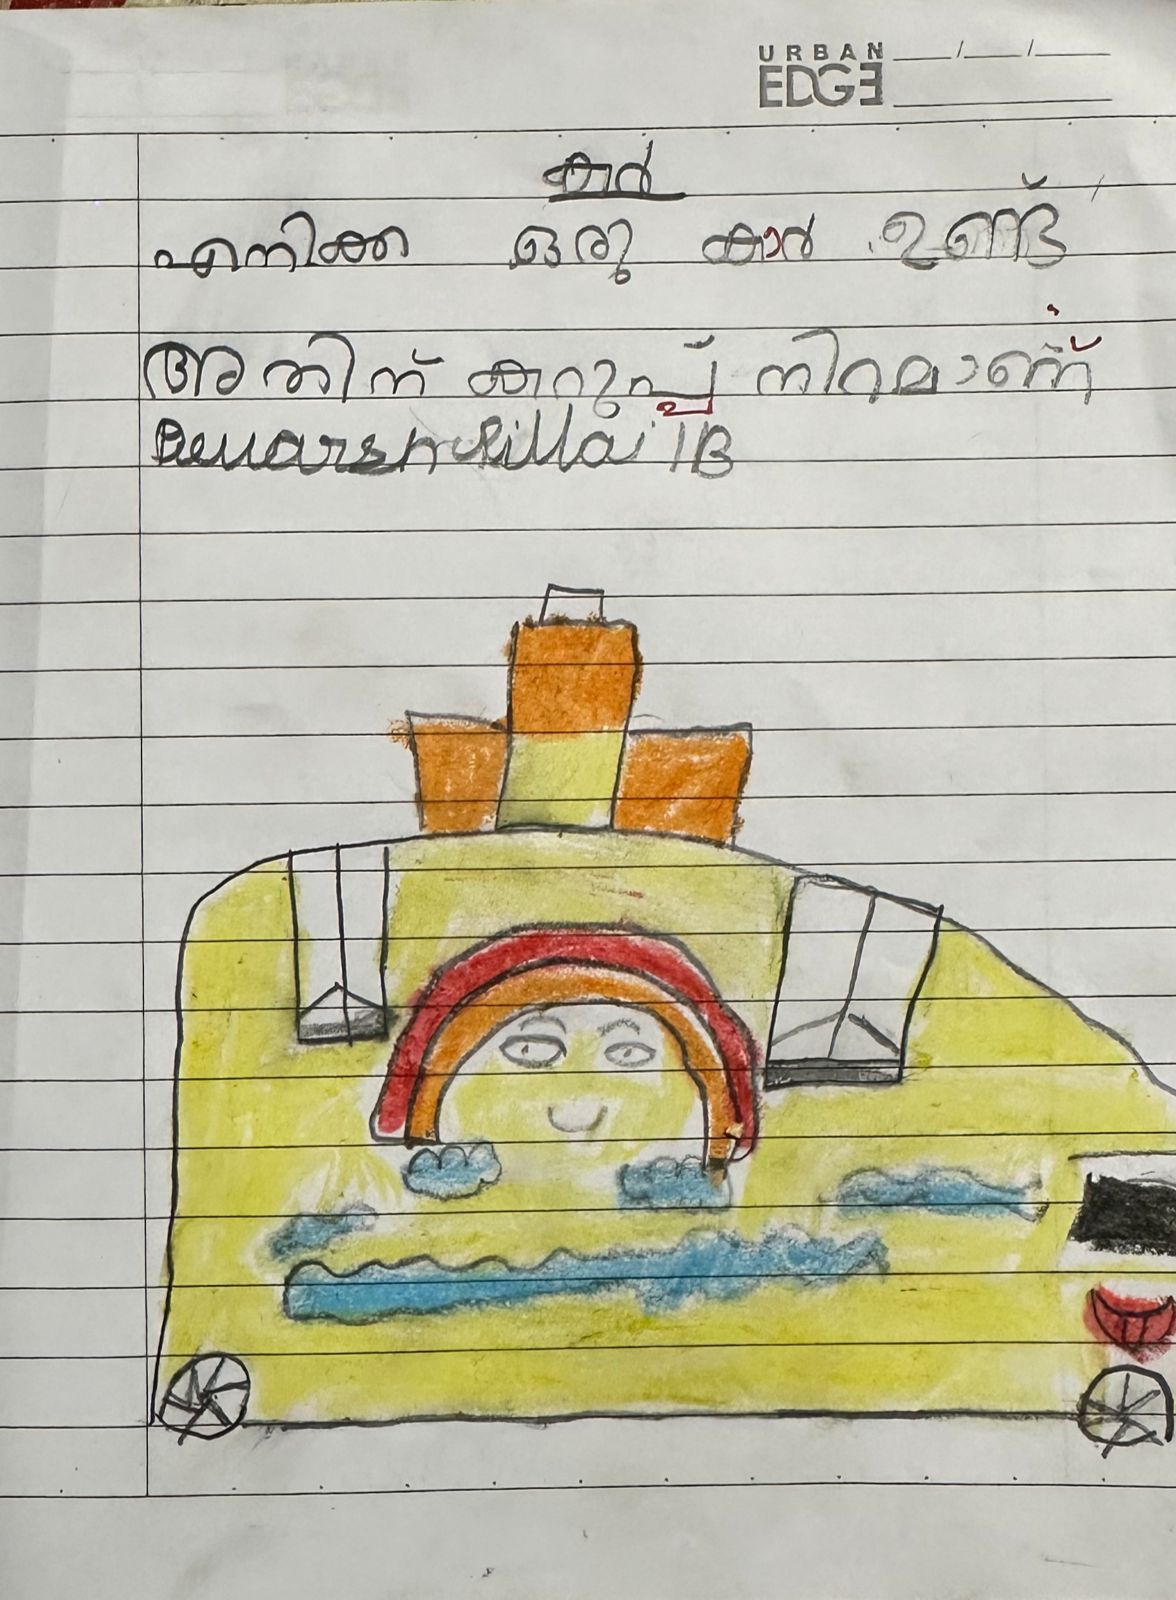 URBAN
EDGE
കാർ
എനിക്ക ഒരു കാർ ഉണ്ട്
അതിന് കറുപ്പ് നിറമാണ്
Pillai 1B